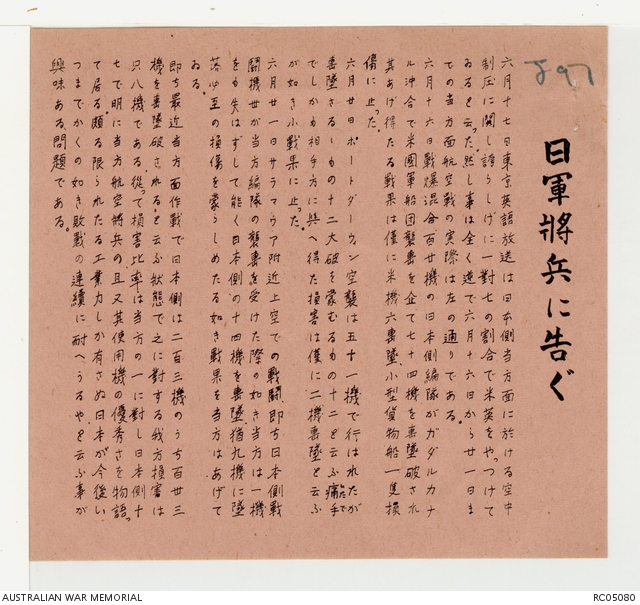 J97
日軍將兵に告ぐ
六月十七日東京英語放送は日本側当方面に於ける空中
制圧に関し誇らしげに一對七の割合で米英をやっつけて
ゐると云った。然し事は全く逆で六月十六日から廿一日ま
での当方面航空戦の実際は左の通りである。
六月十六日戦爆混合百廿機の日本側編隊がガダルカナ
ル沖合で米國軍船団襲撃を企て七十四機を撃墜され
其あげ得たる戦果は僅に米機六撃墜、小型貨物船一隻損
傷に止った。
六月廿日ポートダーウィン空襲は五十一機で行はれたが
撃墜さるるもの十二大破を蒙むるもの十二と云ふ痛手
いたで
でしかも相手方に与へ得た損害は僅に二機撃墜と云ふ
が如き小戦果に止った。
六月廿一日サラマウア附近上空での戦闘、即ち日本側戦
闘機廿が当方編隊の襲撃を受けた際の如き当方は一機
をも失はずして能く日本側の十四機を撃墜、猶九機に墜
落必至の損傷を蒙らしめたる如き戦果を当方はあげて
ゐる。
即ち最近当方面作戦で日本側は二百三機のうち百廿三
機を撃墜破されると云ふ状態で之に對する我方損害は
只八機である。從って損害比率は当方の一に對し日本側十
七で明に当方航空將兵の且又其使用機の優秀さを物語っ
て居る。頗る限られたる工業力しか有さぬ日本が今後い
つまでかくの如き敗戦の連續に耐へうるやと云ふ事が
興味ある問題である。
AUSTRALIAN WAR MEMORIAL
RC05080